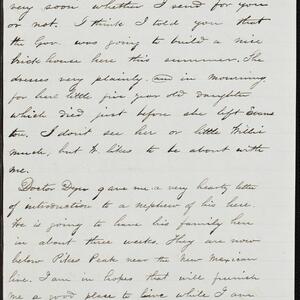 very soon whether I send for you
or not. I think I told you that
the Gov. was going to build a nice
brick house here this summer. She
dresses very plainly and in mourning
for her little five year old daughter
which died just before she left Evans
ton. I don't see her or little Willie
much, but W. likes to be about with
me.
Doctor Dyer gave me a very hearty letter
of introduction to a nephew of his here.
He is going to have his family here
in about three weeks. They are now
below Pikes Peak near the New Mexican
line. I am in hopes that will furnish
me a good place to live while I am